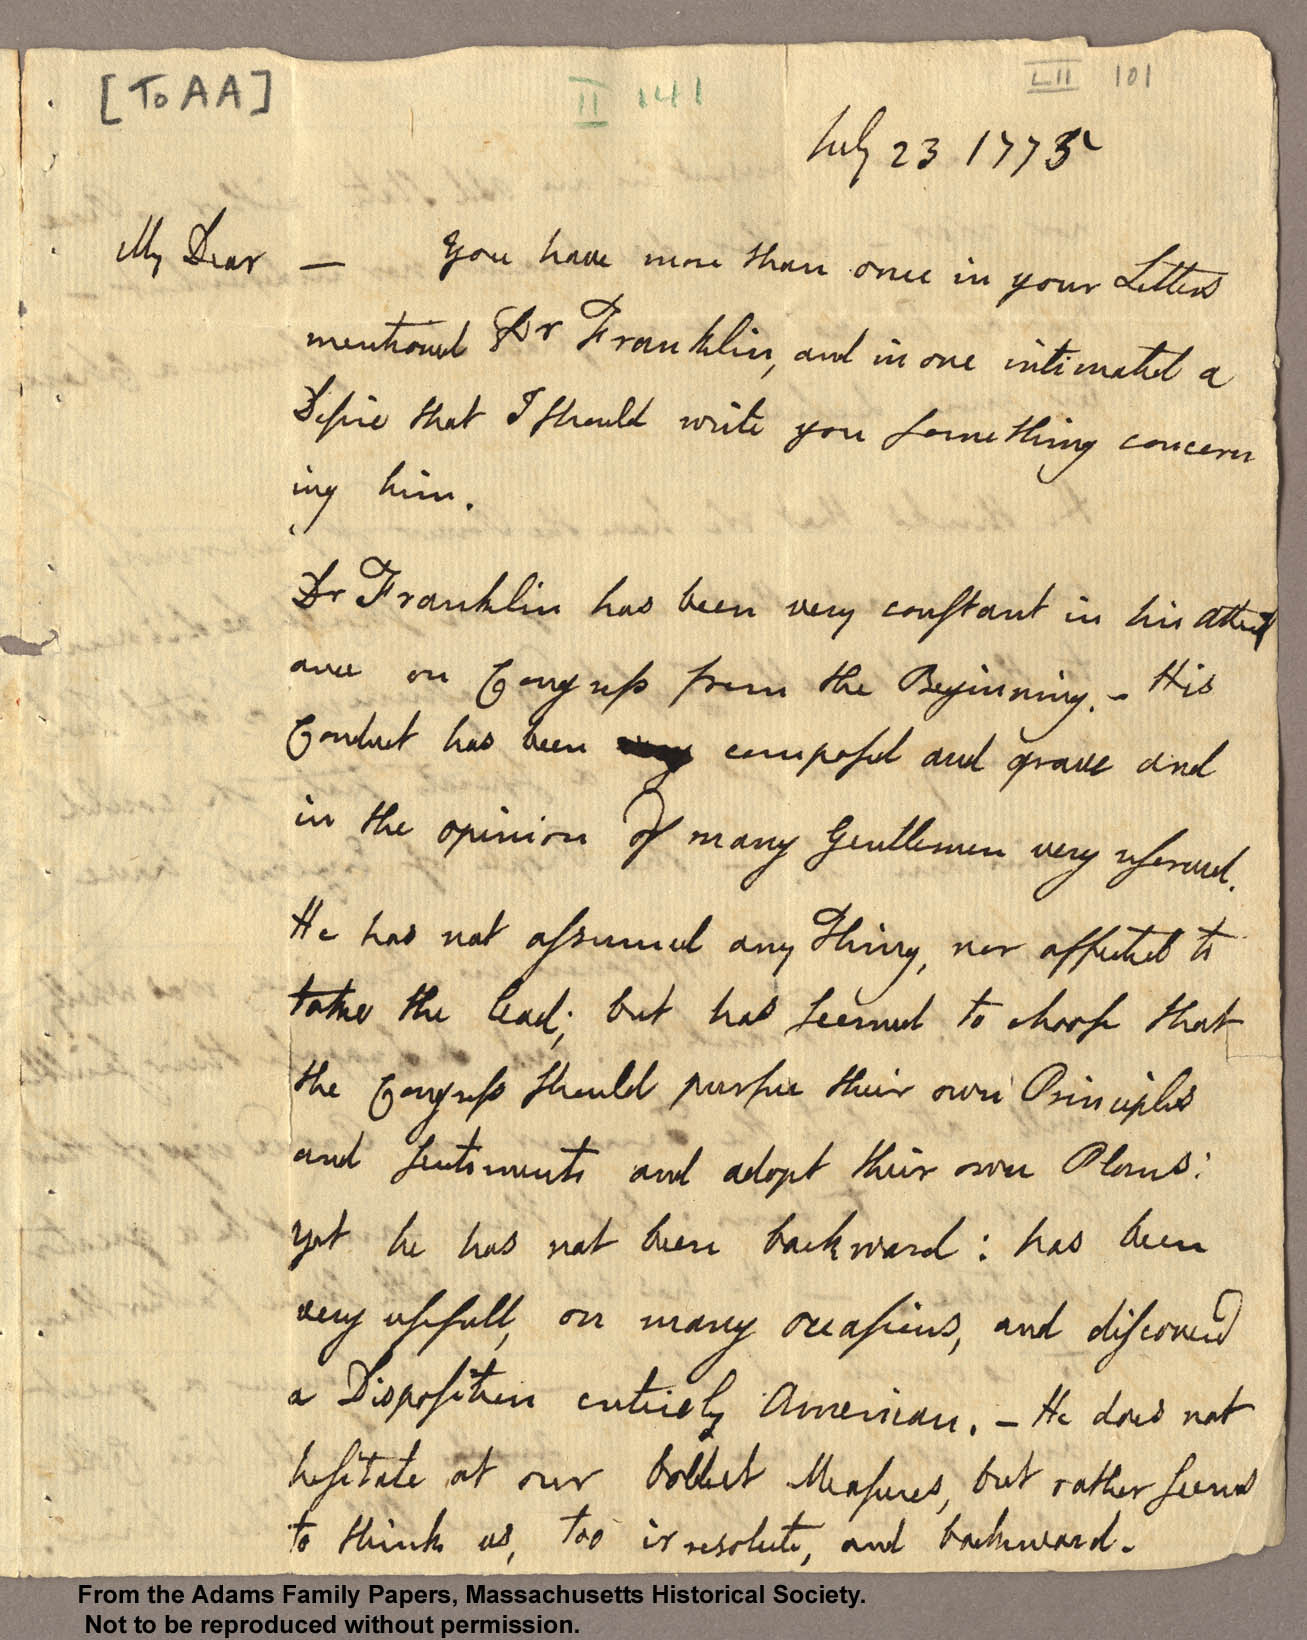 [To AA]
II 141
LII 101
July 23 1775
My Dear — You have more than once in your Letters
mentioned Dr Franklin, and in one intimated a
Desire that I should write you something concern
ing him.
Dr Franklin has been very constant in his Attend
ance on Congress from the Beginning. - His
Conduct has been composed and grave and
in the opinion of many Gentlemen very reserved.
He has not assumed any Thing, nor affected to
take the lead; but has seemed to choose that
the Congress should pursue their own Principles
and sentiments and adopt their own Plans:
Yet he has not been backward: has been
very usefull, on many occasions, and discovered
a Disposition entirely American. - He does not
hesitate at our boldest Measures, but rather seems
to think us, too irresolute, and backward.
From the Adams Family Papers, Massachusetts Historical Society.
Not to be reproduced without permission.